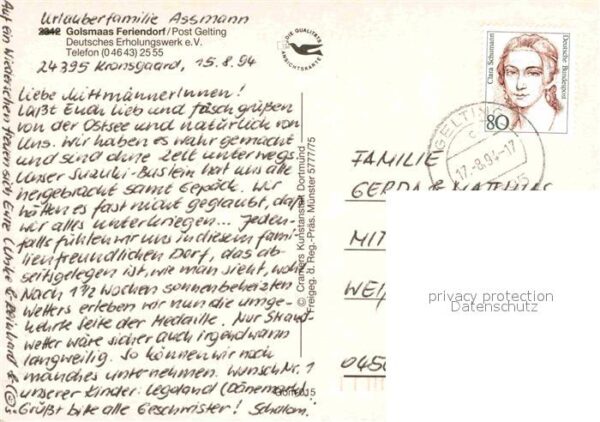 Urlauberfamilie Assmann
2342 Golsmaas Feriendorf/Post Gelting
Deutsches Erholungswerk e.V.
Telefon (0 46 43) 25 55
24395 Kronsgaard, 15.8.94
DIE QUALITÄTS
ANSICHTSKARTE
Liebe MittmännerInnen!
Laßt Euch lieb und fesch grüßen
von der Ostsee und natürlich von
uns. Wir haben es wahr gemacht
und sind ohne Zelt unterwegs.
Unser Suzuki-Buslein hat uns alle
hergebracht samt Gepäck. Wir
hätten es fast nicht geglaubt, daß
wir alles unterkriegen... Jeden-
falls fühlen wir uns in diesem fami-
lienfreundlichen Dorf, das ab-
seitsgelegen ist, wie man sieht, wohl.
Nach 1½ Wochen sonnenbeheizten
Wetters erleben wir nun die umge-
kehrte Seite der Medaille. Nur Strand-
wetter wäre sicher auch irgendwann
langweilig. So können wir noch
manches unternehmen. Wunsch Nr. 1
unserer Kinder: Legoland (Dänemark)
Grüßt bitte alle Geschwister! Schalom!
Auf ein Wiedersehen freuen sich Eure
© Cramers Kunstanstalt Dortmund
Freigeg. d. Reg.-Präs. Münster 5777/75
15
Clara Schumann
Deutsche Bundespost
80
GELTING
17.-8.94-17
FAMILIE
GERDA &
MIT
WEI
045
privacy protection
Datenschutz